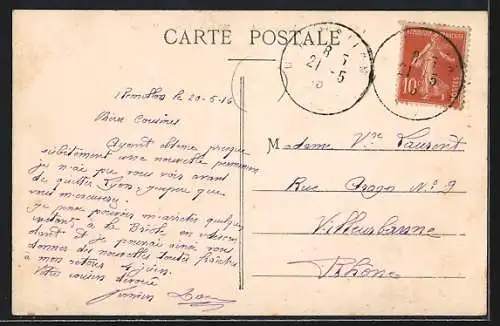 CARTE POSTALE
8 - 7
21 - 5
RÉPUBLIQUE FRANÇAISE
10c
POSTES
le 20-5-16
Chère Cousine
Ayant obtenu presque
subitement une nouvelle permission
je n'ai pu vous voir avant
de quitter Lyon j'espère que
vous m'excuserez
Je pense pouvoir m'arrêter quelques
instants à la
dant et je pourrai ainsi vous
donner des nouvelles toutes fraîches
à mon retour
Votre cousin dévoué
Madame Vve Laurent
Rue Arago No 9
Villeurbanne
Rhône